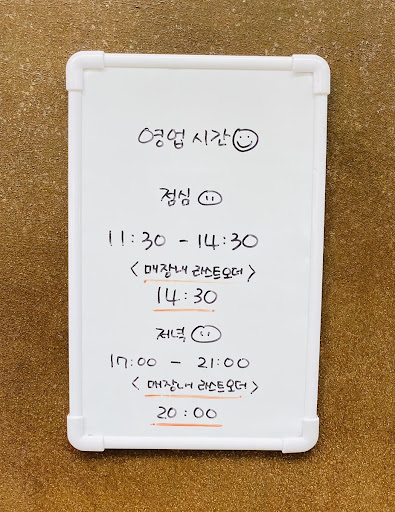 영업 시간
점심
11:30 - 14:30
<매장내 라스트오더>
14:30
저녁
17:00 - 21:00
<매장내 라스트오더>
20:00